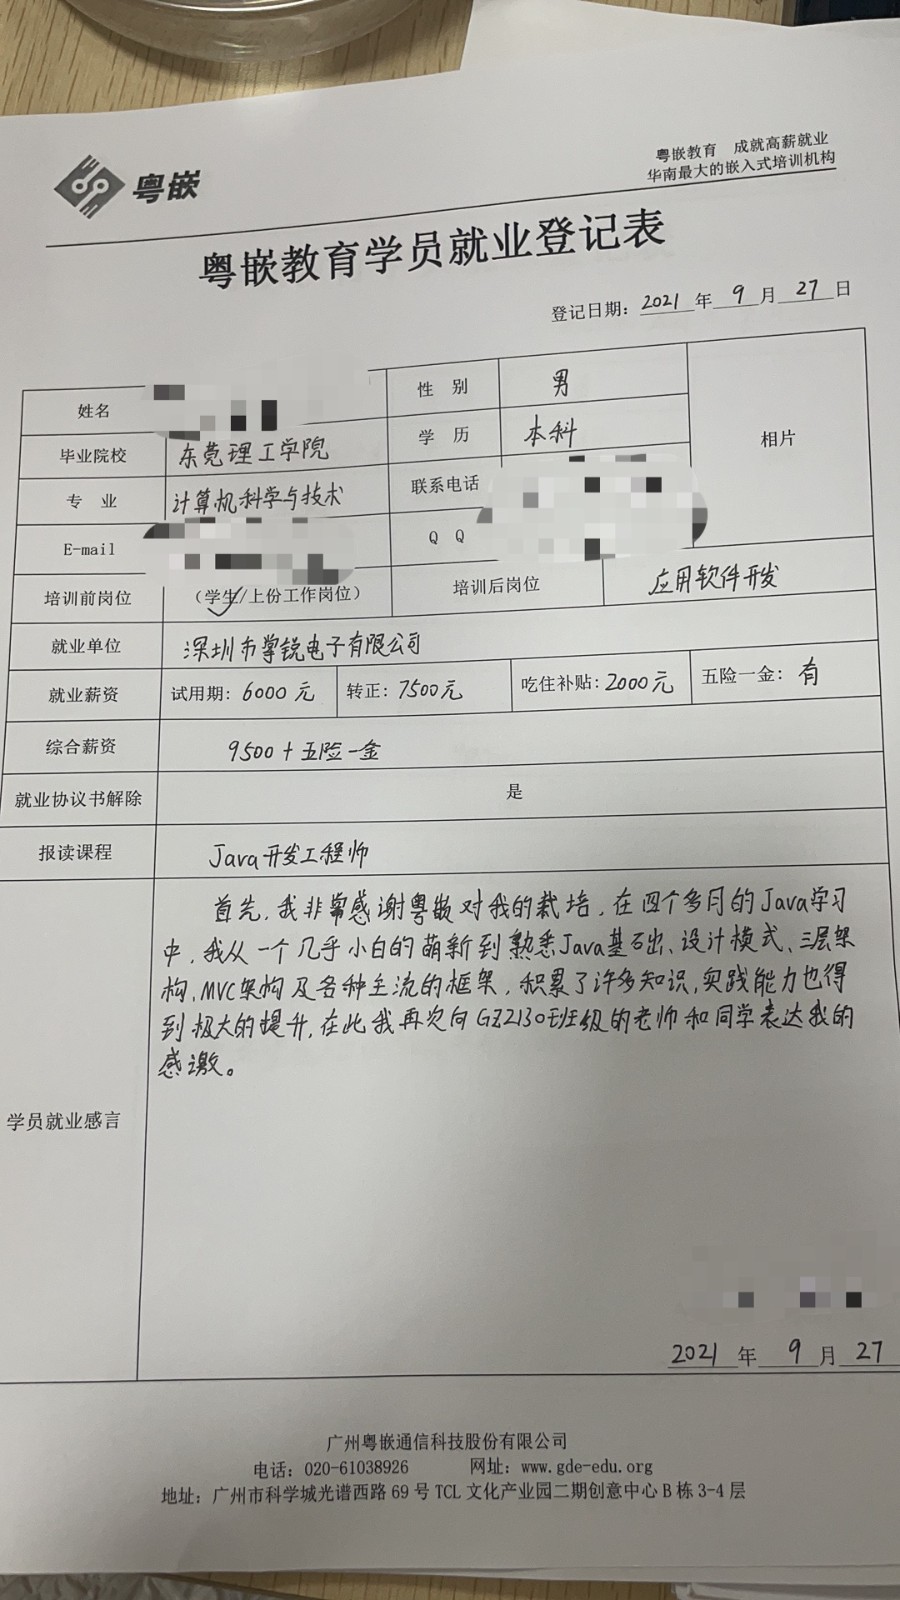 粤嵌
粤嵌教育 成就高薪就业
华南最大的嵌入式培训机构
粤嵌教育学员就业登记表
登记日期：2021年9月27日
姓名 性别 男
毕业院校 东莞理工学院 学历 本科
相片
专业 计算机科学与技术 联系电话
E-mail QQ
培训前岗位 （学生/上份工作岗位） 培训后岗位 应用软件开发
就业单位 深圳市掌锐电子有限公司
就业薪资 试用期：6000元 转正：7500元 吃住补贴：2000元 五险一金：有
综合薪资 9500+五险一金
就业协议书解除 是
报读课程 Java开发工程师
首先，我非常感谢粤嵌对我的栽培，在四个多月的Java学习
中，我从一个几乎小白的萌新到熟悉Java基础、设计模式、三层架
构、MVC架构及各种主流的框架，积累了许多知识，实践能力也得
到极大的提升，在此我再次向GZ2130班级的老师和同学表达我的
感激。
学员就业感言
2021年9月27
广州粤嵌通信科技股份有限公司
电话：020-61038926 网址：www.gde-edu.org
地址：广州市科学城光谱西路69号TCL文化产业园二期创意中心B栋3-4层